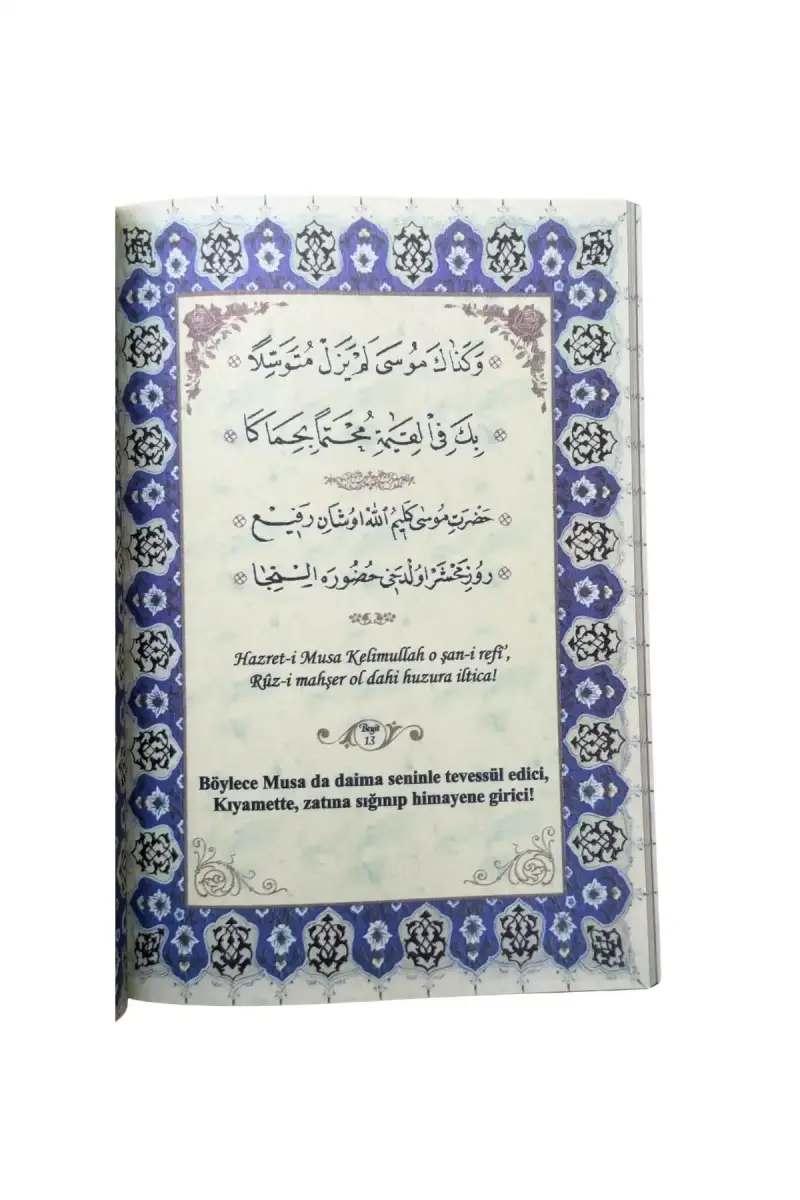 وَكَذَاكَ مُوسَى لَمْ يَزَلْ مُتَوَسِّلاً
بِكَ فِى الْقِيٰمَةِ مُحْتَمًا بِحِمَاكَا
حَضْرَتِ مُوسٰى كَلِيمُ اللّٰه اوشَانِ رَفِيعْ
رُوزِ مَحْشَرْ اوُلْدَخِى حُضُورَه اِلْتِجَا
Hazret-i Musa Kelimullah o şan-i refî',
Rûz-i mahşer ol dahi huzura iltica!
Beyit
13
Böylece Musa da daima seninle tevessül edici,
Kıyamette, zatına sığınıp himayene girici!